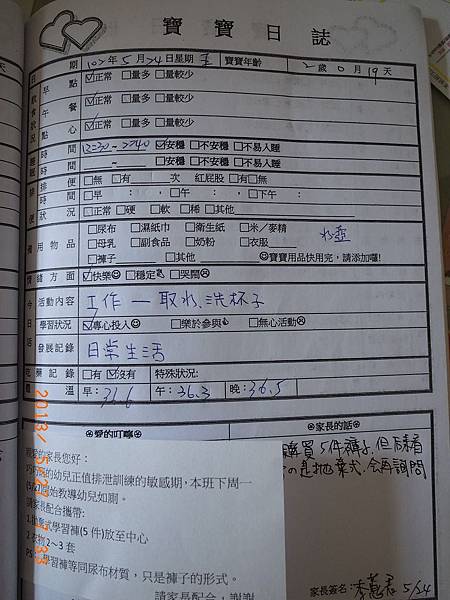 寶寶日誌
日期 102年5月24日星期五 寶寶年齡 2歲0月19天
飲食狀況 早點 ☑正常 □量多 □量較少
午餐 ☑正常 □量多 □量較少
點心 ☑正常 □量多 □量較少
睡眠 時間 12:30~2:40 ☑安穩 □不安穩 □不易入睡
時間 ~ □安穩 □不安穩 □不易入睡
排便 排便 □無 □有 次 紅屁股 □有□無
時間 □早: , □午: , □下午:
狀況 □正常 □硬 □軟 □稀 □其他
備用物品 □尿布 □濕紙巾 □衛生紙 □米／麥精 水壺
□母乳 □副食品 □奶粉 □衣服
□褲子 □其他 ☺寶寶用品快用完，請添加喔!
情緒方面 ☑快樂☺ □穩定 □哭鬧☹
今日活動 活動內容 工作一取水、洗杯子
學習狀況 ☑專心投入☺ □樂於參與 □無心活動☹
發展記錄 日常生活
吃藥記錄 □有 ☑沒有 特殊狀況:
體溫 早:36.6 午:36.3 晚:36.5
愛的叮嚀 家長的話
購買5件褲子,但后看
是拋棄式,会再詢問
親愛的家長您好：
的幼兒正值排泄訓練的敏感期，本班下周一
開始教導幼兒如廁。
請家長配合攜帶:
式學習褲(5 件)放至中心
2~3 套
PS 學習褲等同尿布材質，只是褲子的形式。
請家長配合，謝謝
家長簽名: 5/24
2013/5/27